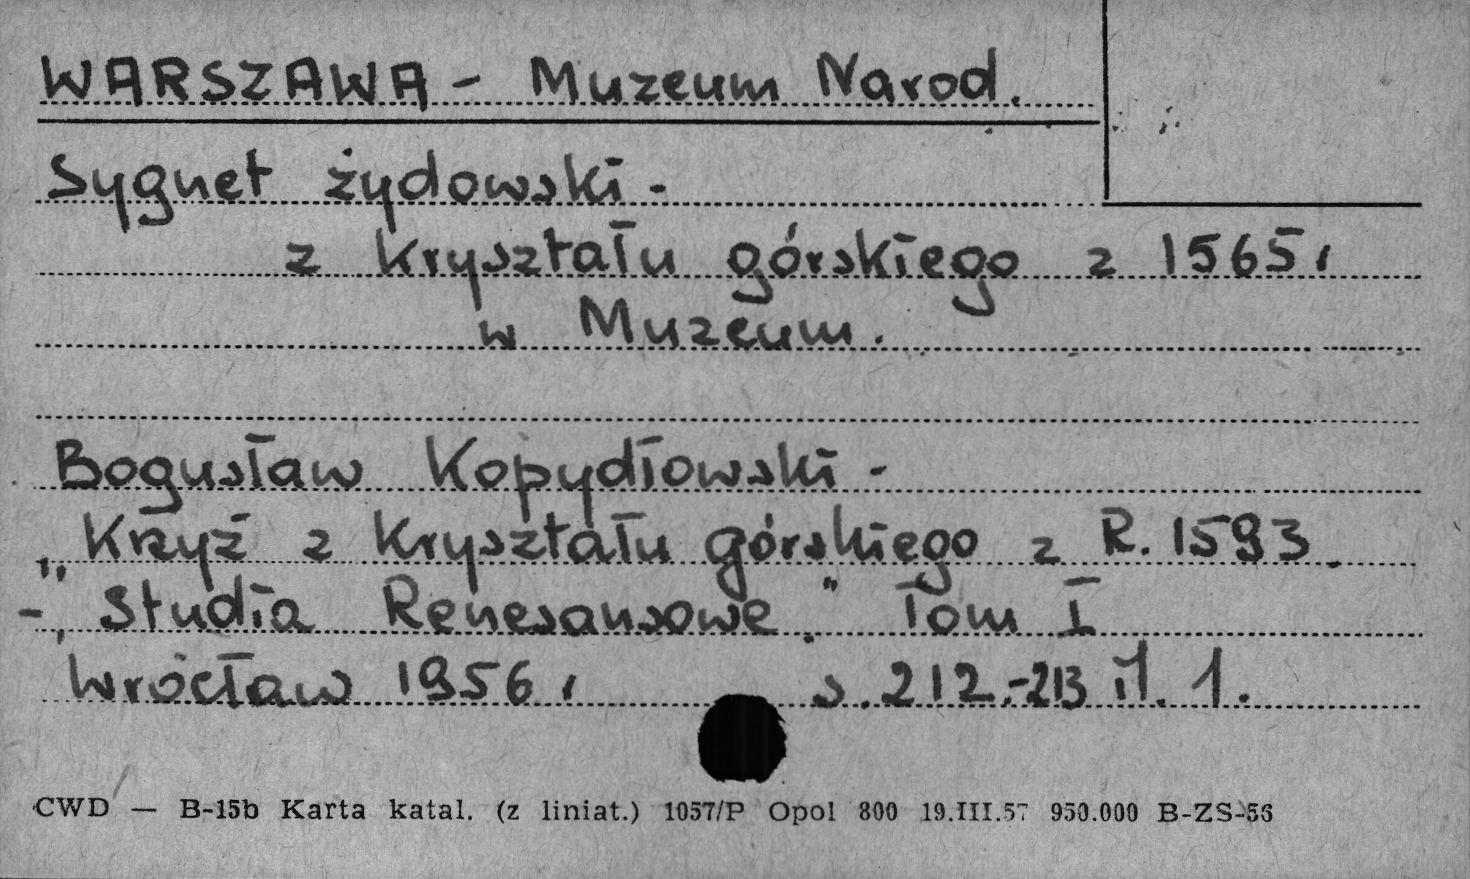 WARSZAWA - Muzeum Narod.
Sygnet żydowski -
z kryształu górskiego z 1565 r
w Muzeum.
Bogusław Kopydłowski -
„Krzyż z kryształu górskiego z R. 1593.
- „Studia Renesansowe." Tom I
Wrocław 1956 r s. 212.-213 il. 1.
CWD — B-15b Karta katal. (z liniat.) 1057/P Opol 800 19.III.57 950.000 B-ZS-56